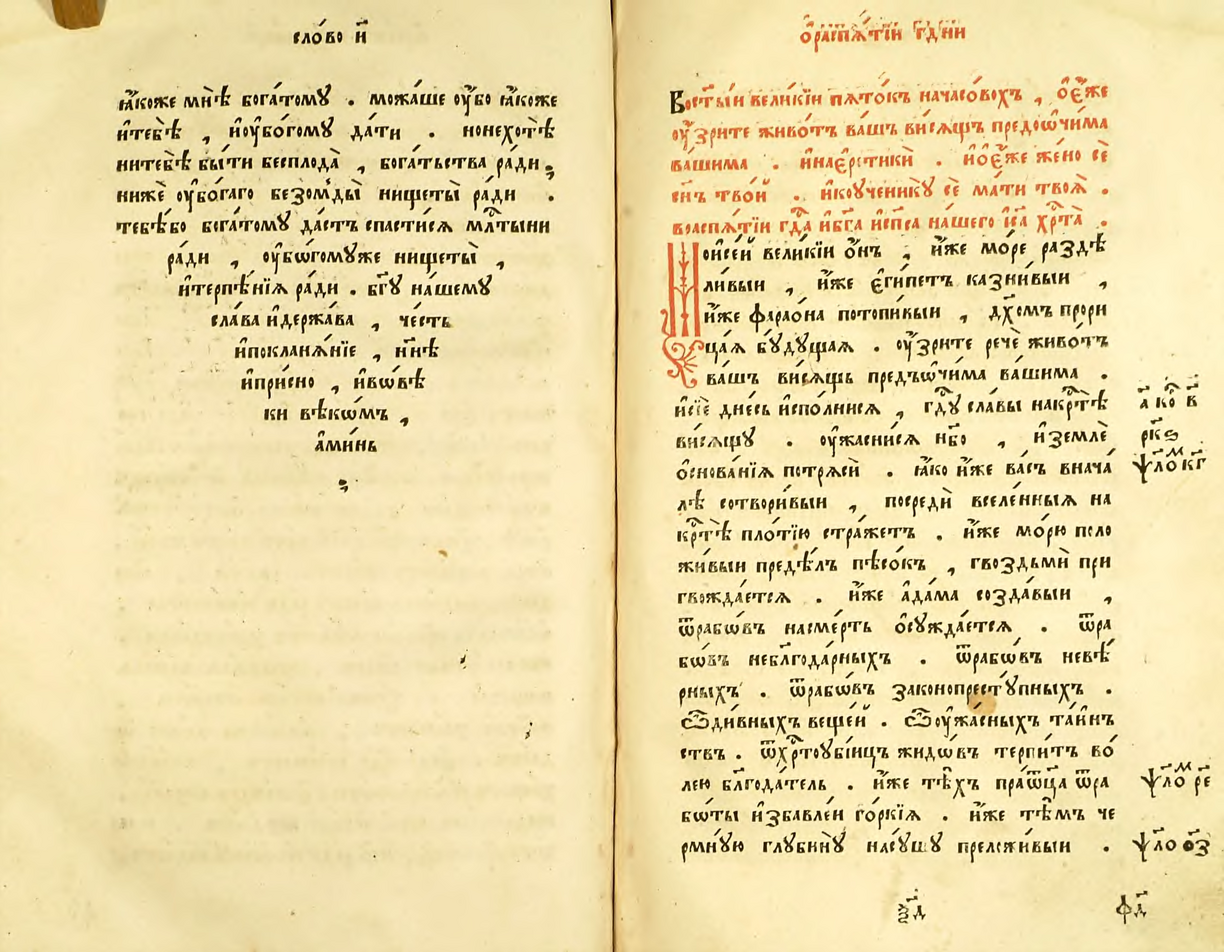 сло́во и҃
ꙗ҆́коже мнѣ̀ бога́томꙋ . можа́ше ᲂу҆̀бо ꙗ҆́коже
и҆тебѣ̀ , и҆ᲂу҆бо́гомꙋ да́ти . нонехотѣ̀
нитебѣ̀ бы́ти бесплода̀ , бога́тьства ра́ди ,
нижѐ ᲂу҆бо́гаго безо́мзды̀ нищеты̀ ра́ди .
тебѣ́бо бога́томꙋ да́стъ спасти́сѧ млⷭ҇тыни
ра́ди , ᲂу҆бѡ́гомꙋже нищеты̀ ,
и҆терпѣ́нїѧ ра́ди . бг҃ꙋ на́шемꙋ
сла́ва и҆держа́ва , че́сть
и҆покланѧ́нїе , нн҃ѣ
и҆при́сно , и҆вѡ́вѣ
ки вѣкѡ́мъ ,
а҆ми́нь
ѡ҆распѧ́тїи гдⷭ҇ни
Востⷭ҇ы́и вели́кїи пѧто́къ начасо́вохъ , ѡ҆е҆́же
ᲂу҆́зрите живо́тъ ва́шъ ви́сѧщъ предоѡ҆чи́ма
ва́шима . и҆наєрⷭ҇тикѝ . и҆ѡ҆е҆́же же́но сѐ
сн҃ъ тво́й . и҆коученикꙋ̀ сѐ ма́ти твоѧ̀ .
ворⷭ҇аспѧ́тїи гдⷭ҇а и҆бг҃а и҆сп҃са на́шего і҆с҃а хрⷭ҇та̀ .
Мѡисе́й вели́кїи ѻ҆́нъ , и҆́же мо́ре раздѣ
ли́выи , и҆́же є҆ги́петъ казни́выи ,
и҆́же фарао́на потопи́выи , дх҃омъ прори
ца́ѧ бꙋ́дꙋщаѧ . ᲂу҆́зрите речѐ живо́тъ
ва́шъ ви́сѧщь предъѡ҆чи́ма ва́шима .
и҆сїѐ дне́сь и҆спо́лнисѧ , гдⷭ҇ꙋ сла́вы накрⷭ҇тѣ̀
ви́сѧщꙋ . ᲂу҆жасни́сѧ нб҃о , и҆землѐ
ѻ҆снова́нїѧ потрѧсѝ . ꙗ҆́ко и҆́же ва́съ внача́
лѣ сотвори́выи , посредѝ вселе́нныѧ на
крⷭ҇тѣ̀ пло́тїю стра́жетъ . и҆́же мо́рю поло
жи́выи предѣ́лъ пѣсо́къ , гвоздьмѝ при
гвожда́етсѧ . и҆́же а҆да́ма созда́выи ,
ѿрабѡ́въ насме́рть ѻ҆сꙋжда́етсѧ . ѿра
бѡ́въ небл҃года́рныхъ . ѿрабѡ́въ невѣ́
рныхъ . ѿрабѡ́въ законопрестꙋ́пныхъ .
ѽди́вныхъ веще́й . ѽᲂу҆жа́сныхъ та́инъ
ствъ . ѿхрⷭ҇тоубі́ицъ жидѡ́въ терпи́тъ во́
лею бл҃года́тель . и҆́же тѣ́хъ пра́ѿца ѿра
бѡ́ты и҆зба́влеи го́ркїѧ . и҆́же тѣ́мъ че
рмнꙋ́ю глꙋбинꙋ̀ на́сꙋшꙋ прелѡжи́выи .
а҃ коⷬ҇ в҃
рк҃ѕ
ѱаⷧ҇оⷨ к҃г
ѱаⷧ҇оⷨ р҃е
ѱаⷧ҇о ѻ҃з
з҃д
ф҃д